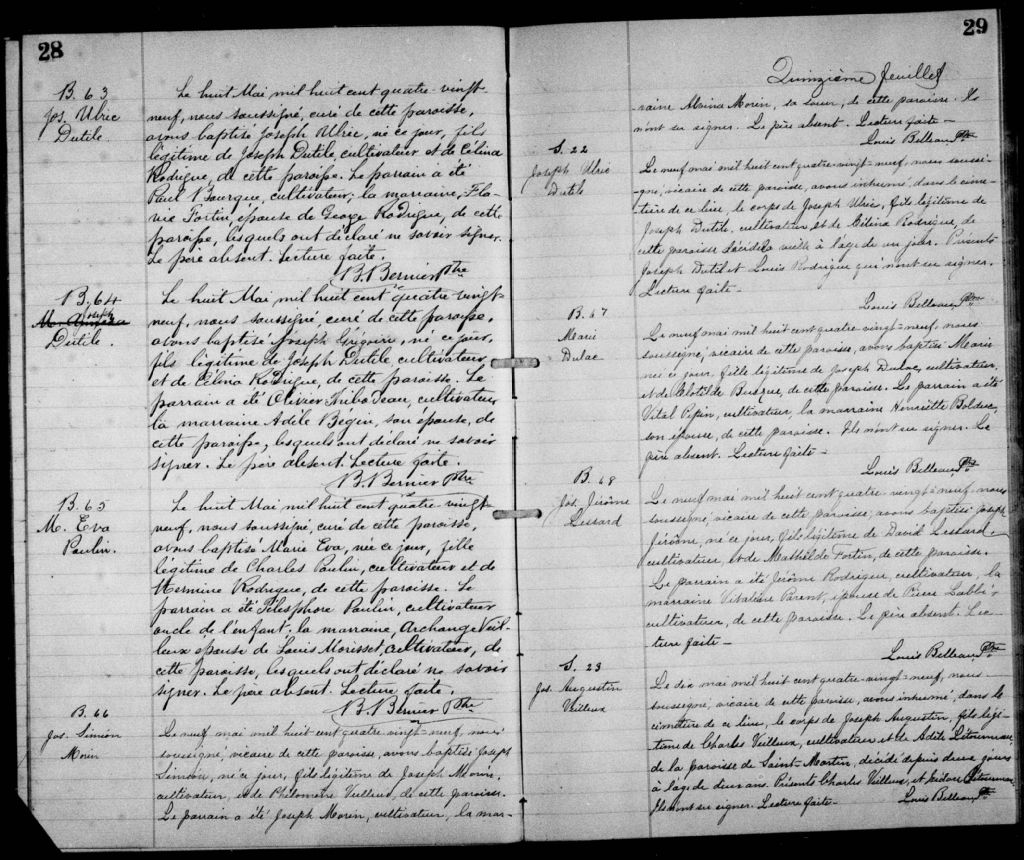 28
B. 63
Jos. Ulric
Dutile.
Le huit Mai mil huit cent quatre-vingt-
neuf, nous soussigné, curé de cette paroisse,
avons baptisé Joseph Ulric, né ce jour, fils
légitime de Joseph Dutile, cultivateur et de Célina
Rodrigue, de cette paroisse. Le parrain a été
Paul Bourque, cultivateur; la marraine, Fla-
vie Fortin, épouse de George Rodrigue, de cette
paroisse, lesquels ont déclaré ne savoir signer.
Le père absent. Lecture faite.
B. Bernier Ptre
B. 64
Joseph
Dutile.
Le huit Mai mil huit cent quatre-vingt-
neuf, nous soussigné, curé de cette paroisse,
avons baptisé Joseph Grégoire, né ce jour,
fils légitime de Joseph Dutile, cultivateur
et de Célina Rodrigue, de cette paroisse. Le
parrain a été Olivier Thibodeau, cultivateur,
la marraine Adèle Bégin, son épouse, de
cette paroisse, lesquels ont déclaré ne savoir
signer. Le père absent. Lecture faite.
B. Bernier Ptre
B. 65
M. Eva
Poulin.
Le huit Mai mil huit cent quatre-vingt-
neuf, nous soussigné, curé de cette paroisse,
avons baptisé Marie Eva, née ce jour, fille
légitime de Charles Poulin, cultivateur et de
Hermine Rodrigue, de cette paroisse. Le
parrain a été Télesphore Poulin, cultivateur
oncle de l'enfant; la marraine, Archange Veil-
leux épouse de Louis Morisset, cultivateur, de
cette paroisse, lesquels ont déclaré ne savoir
signer. Le père absent. Lecture faite.
B. Bernier Ptre
B. 66
Jos. Siméon
Morin
Le neuf mai mil huit cent quatre-vingt-neuf, nous
soussigné, vicaire de cette paroisse, avons baptisé Joseph
Siméon, né ce jour, fils légitime de Joseph Morin,
cultivateur, et de Philomène Veilleux, de cette paroisse.
Le parrain a été Joseph Morin, cultivateur, la mar-
29
Quinzième feuillet
raine Alvina Morin, sa soeur, de cette paroisse. Ils
n'ont su signer. Le père absent. Lecture faite -
Louis Belleau Ptre
S. 22
Joseph Ulric
Dutile
Le neuf mai mil huit cent quatre-vingt-neuf, nous soussi-
gné, vicaire de cette paroisse, avons inhumé, dans le cime-
tière de ce lieu, le corps de Joseph Ulric, fils légitime de
Joseph Dutile, cultivateur et de Célina Rodrigue, de
cette paroisse décédé la veille à l'âge de un jour. Présents
Joseph Dutil et Louis Rodrigue qui n'ont su signer.
Lecture faite -
Louis Belleau Ptre
B. 67
Marie
Dulac
Le neuf mai mil huit cent quatre-vingt-neuf, nous
soussigné, vicaire de cette paroisse, avons baptisé Marie
née ce jour, fille légitime de Joseph Dulac, cultivateur,
et de Clotilde Busque, de cette paroisse. Le parrain a été
Vital Pépin, cultivateur, la marraine Henriette Bolduc,
son épouse, de cette paroisse. Ils n'ont su signer. Le
père absent. Lecture faite -
Louis Belleau Ptre
B. 68
Jos. Jérôme
Lessard
Le neuf mai mil huit cent quatre-vingt-neuf nous
soussigné, vicaire de cette paroisse, avons baptisé Joseph
Jérôme, né ce jour, fils légitime de David Lessard,
cultivateur, et de Mathilde Fortin, de cette paroisse.
Le parrain a été Jérôme Rodrigue, cultivateur, la
marraine Vitaline Parent, épouse de Pierre
cultivateur, de cette paroisse. Le père absent. Lec-
ture faite -
Louis Belleau Ptre
S. 23
Jos. Augustin
Veilleux
Le dix mai mil huit cent quatre-vingt-neuf, nous
soussigné, vicaire de cette paroisse, avons inhumé, dans le
cimetière de ce lieu, le corps de Joseph Augustin, fils légi-
time de Charles Veilleux, cultivateur et de Adèle Létourneau,
de la paroisse de Saint-Martin, décédé depuis deux jours
à l'âge de deux ans. Présents Charles Veilleux, et Isidore Létourneau.
Ils n'ont su signer. Lecture faite -
Louis Belleau Ptre